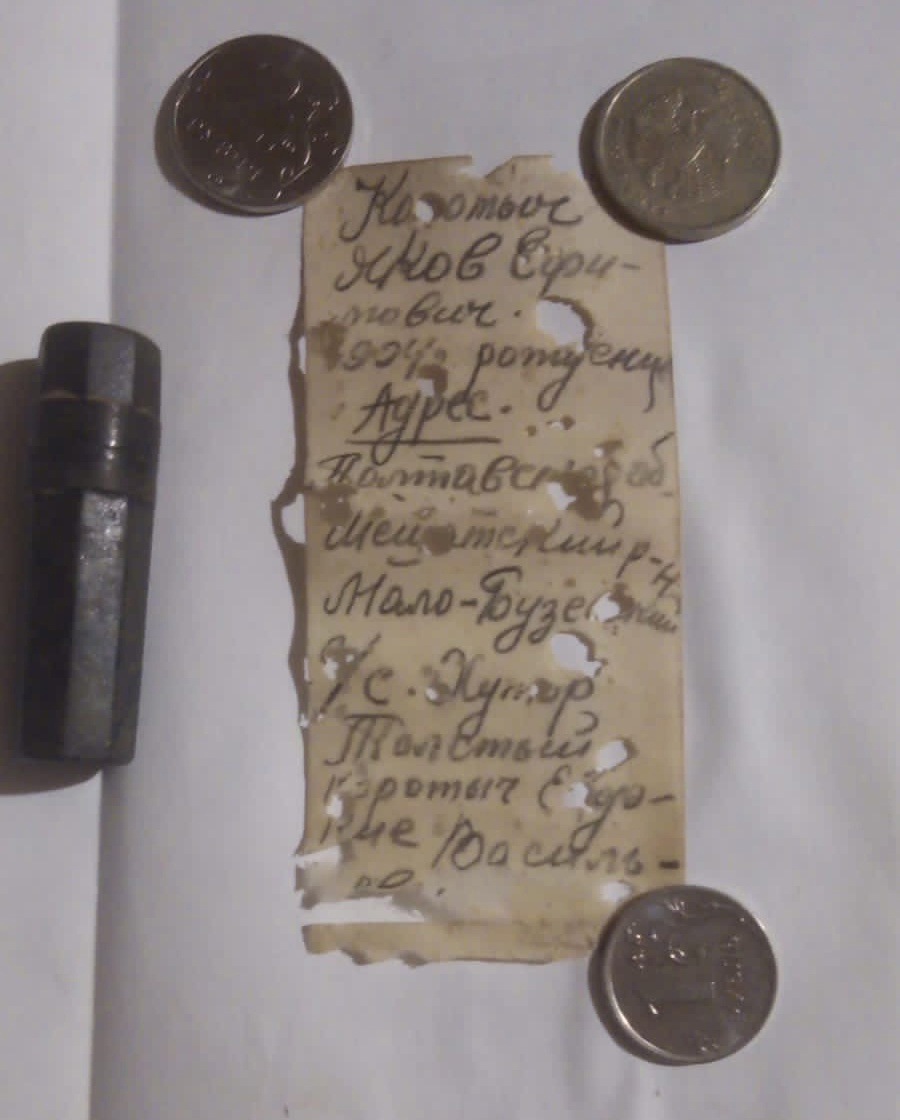 Коротыч
Яков Ефи-
мович.
1904г. рождения
Адрес.
Полтавская об.
р-н
Мало-Бузе
с/с. Хутор
Толстый
Коротыч Евдо-
кие Василь-
1